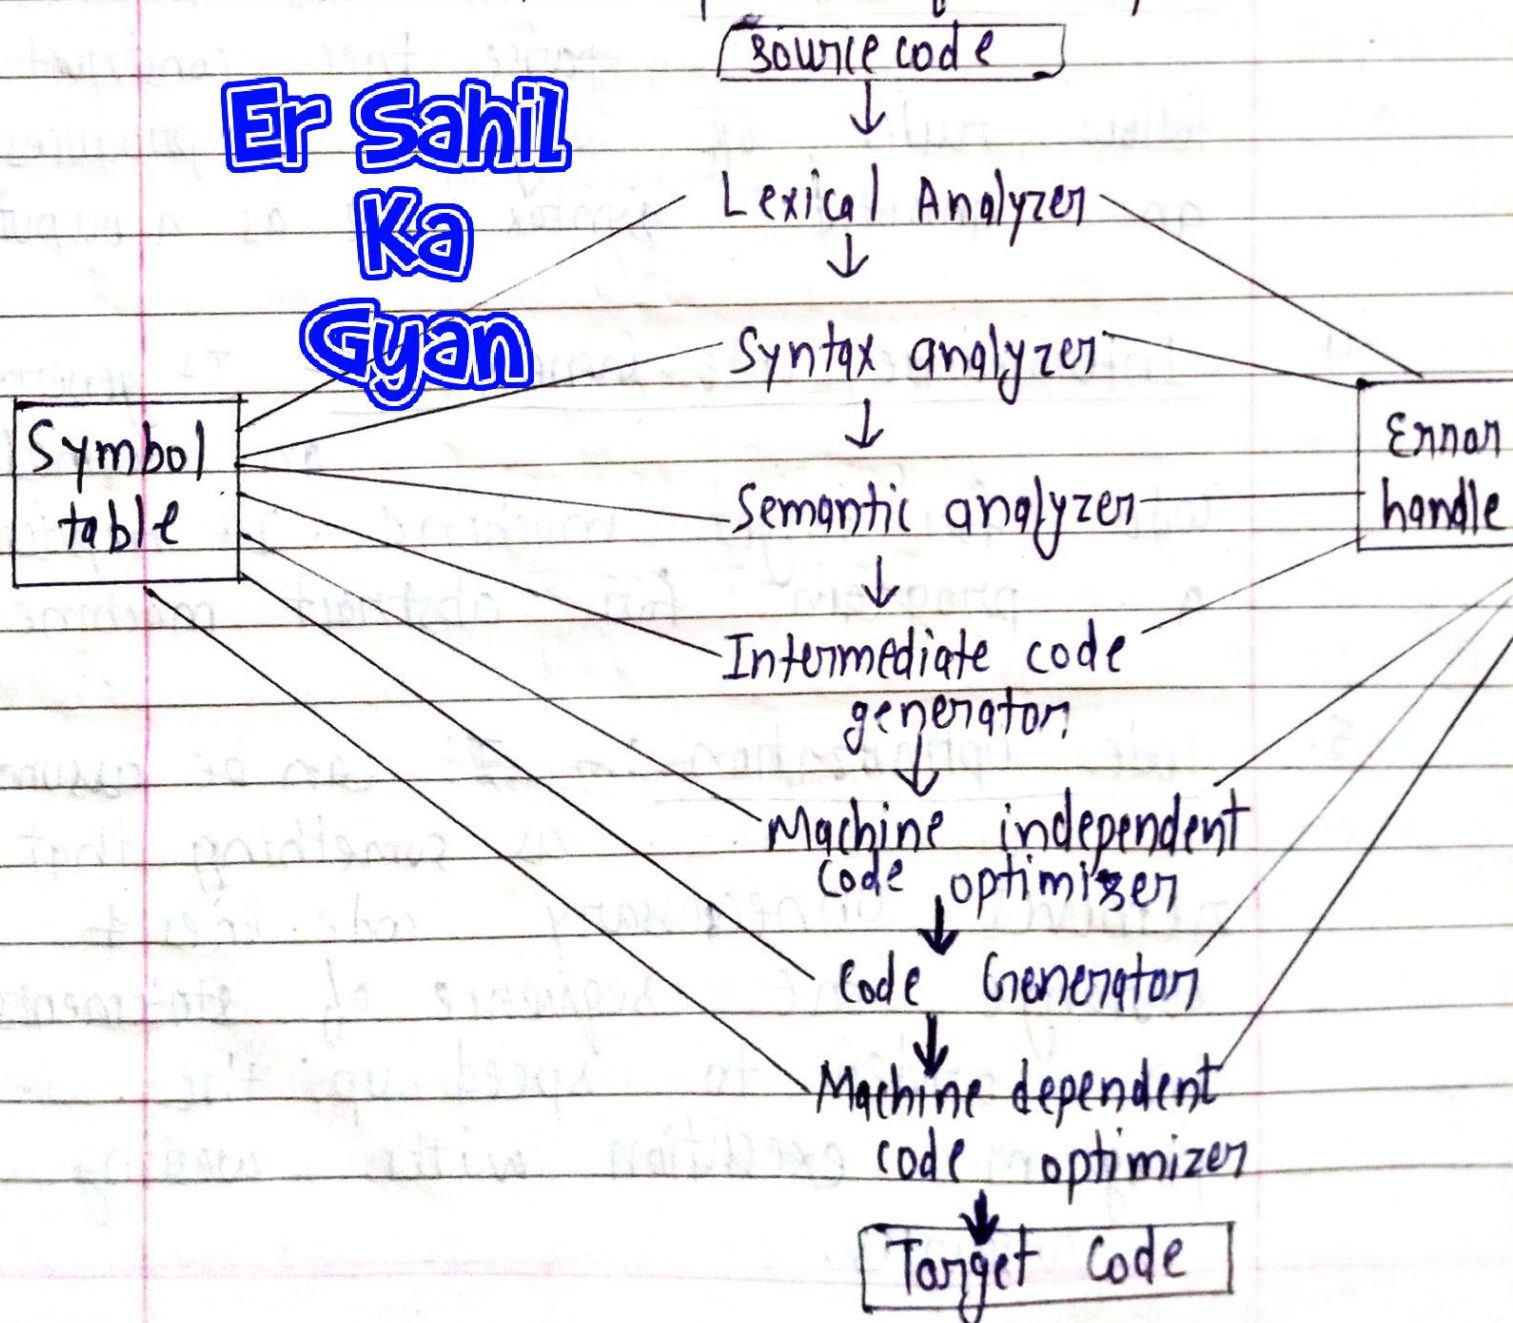 source code
Er Sahil
Ka
Gyan
Lexical Analyzer
Syntax analyzer
Symbol
table
Error
handle
Semantic analyzer
Intermediate code
generator
Machine independent
code optimizer
Code Generator
Machine dependent
code optimizer
Target Code